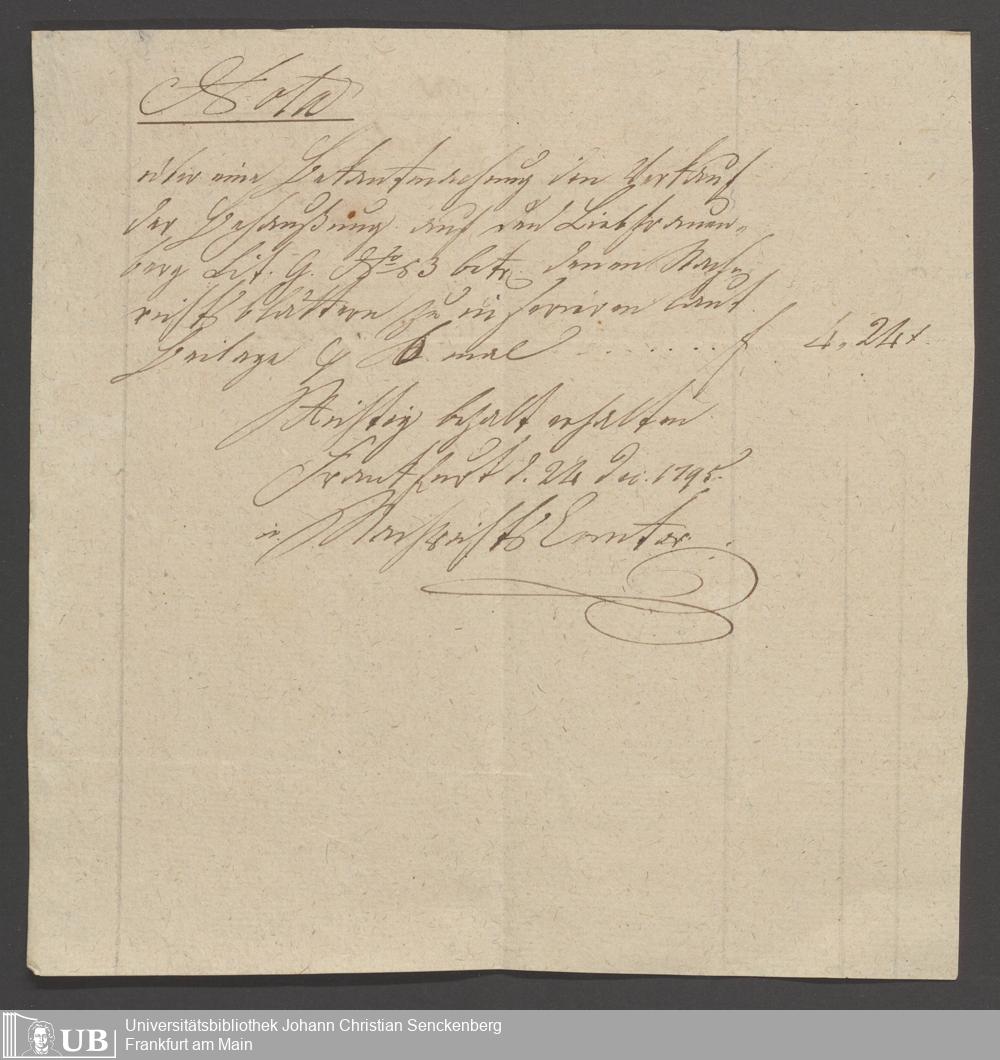 Nota
über eine Bekantmachung den Verkauf
der Behaußung auf den Liebfrauen-
berg Lit. G. No 53 betr. denen Nach-
richtsblättern zu inseriren laut
Beilage 6 mal . . . . . . f 4, 24 x
Richtig bezalt erhalten
Frankfurt d. 24 Dec. 1795.
Nachrichts Comtor
UB
Universitätsbibliothek Johann Christian Senckenberg
Frankfurt am Main